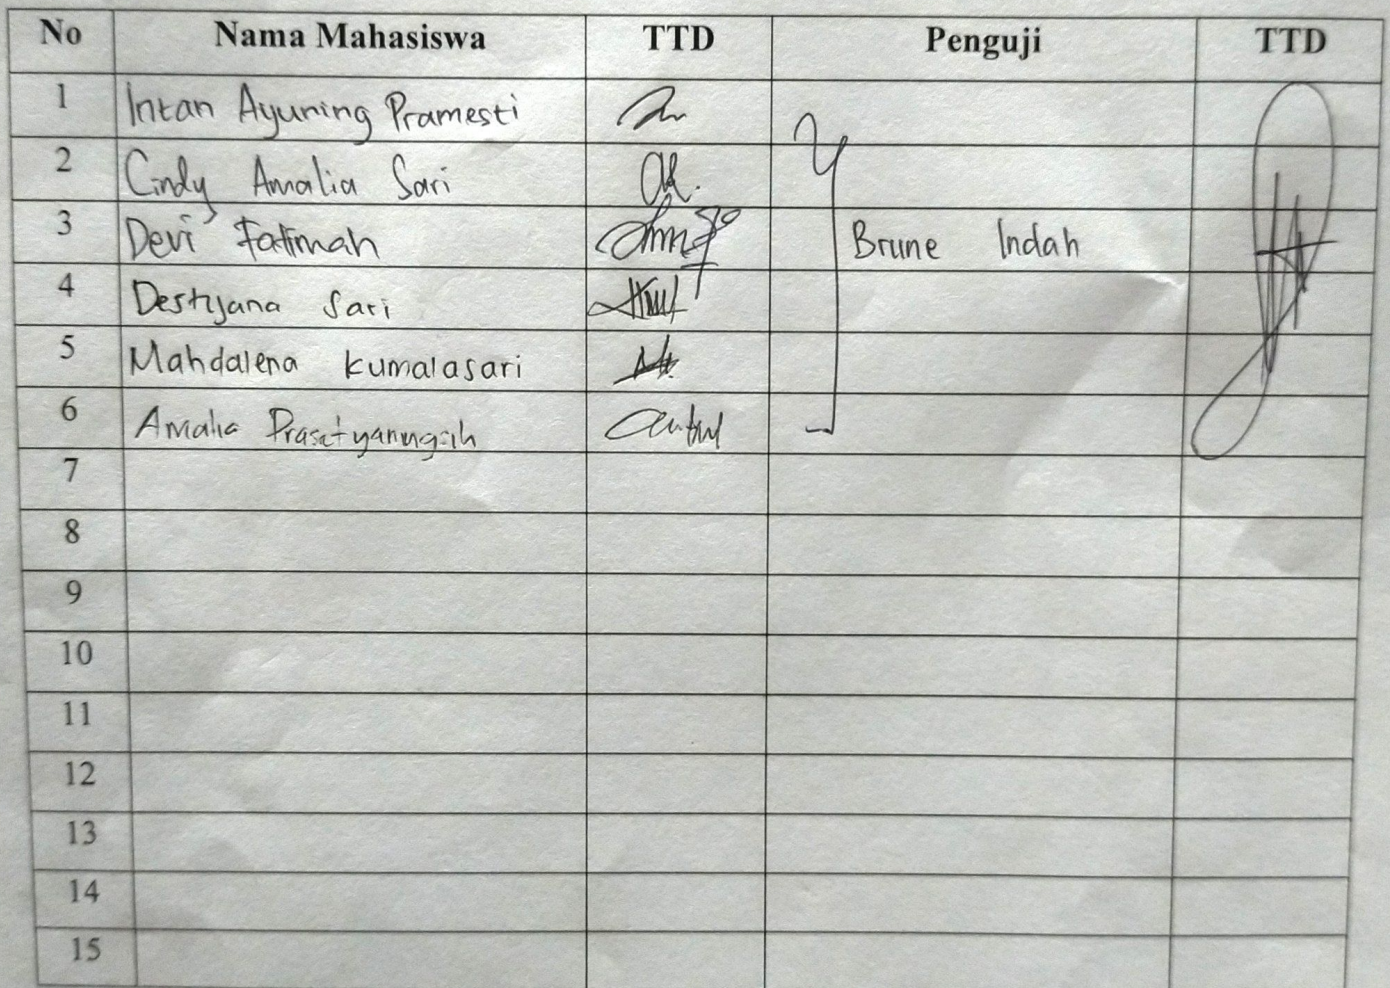 No Nama Mahasiswa TTD Penguji TTD
1 Intan Ayuning Pramesti
2 Cindy Amalia Sari
3 Devi Fatimah Brune Indah
4 Destyana Sari
5 Mahdalena Kumalasari
6 Amalia Prasetyaningsih
7
8
9
10
11
12
13
14
15